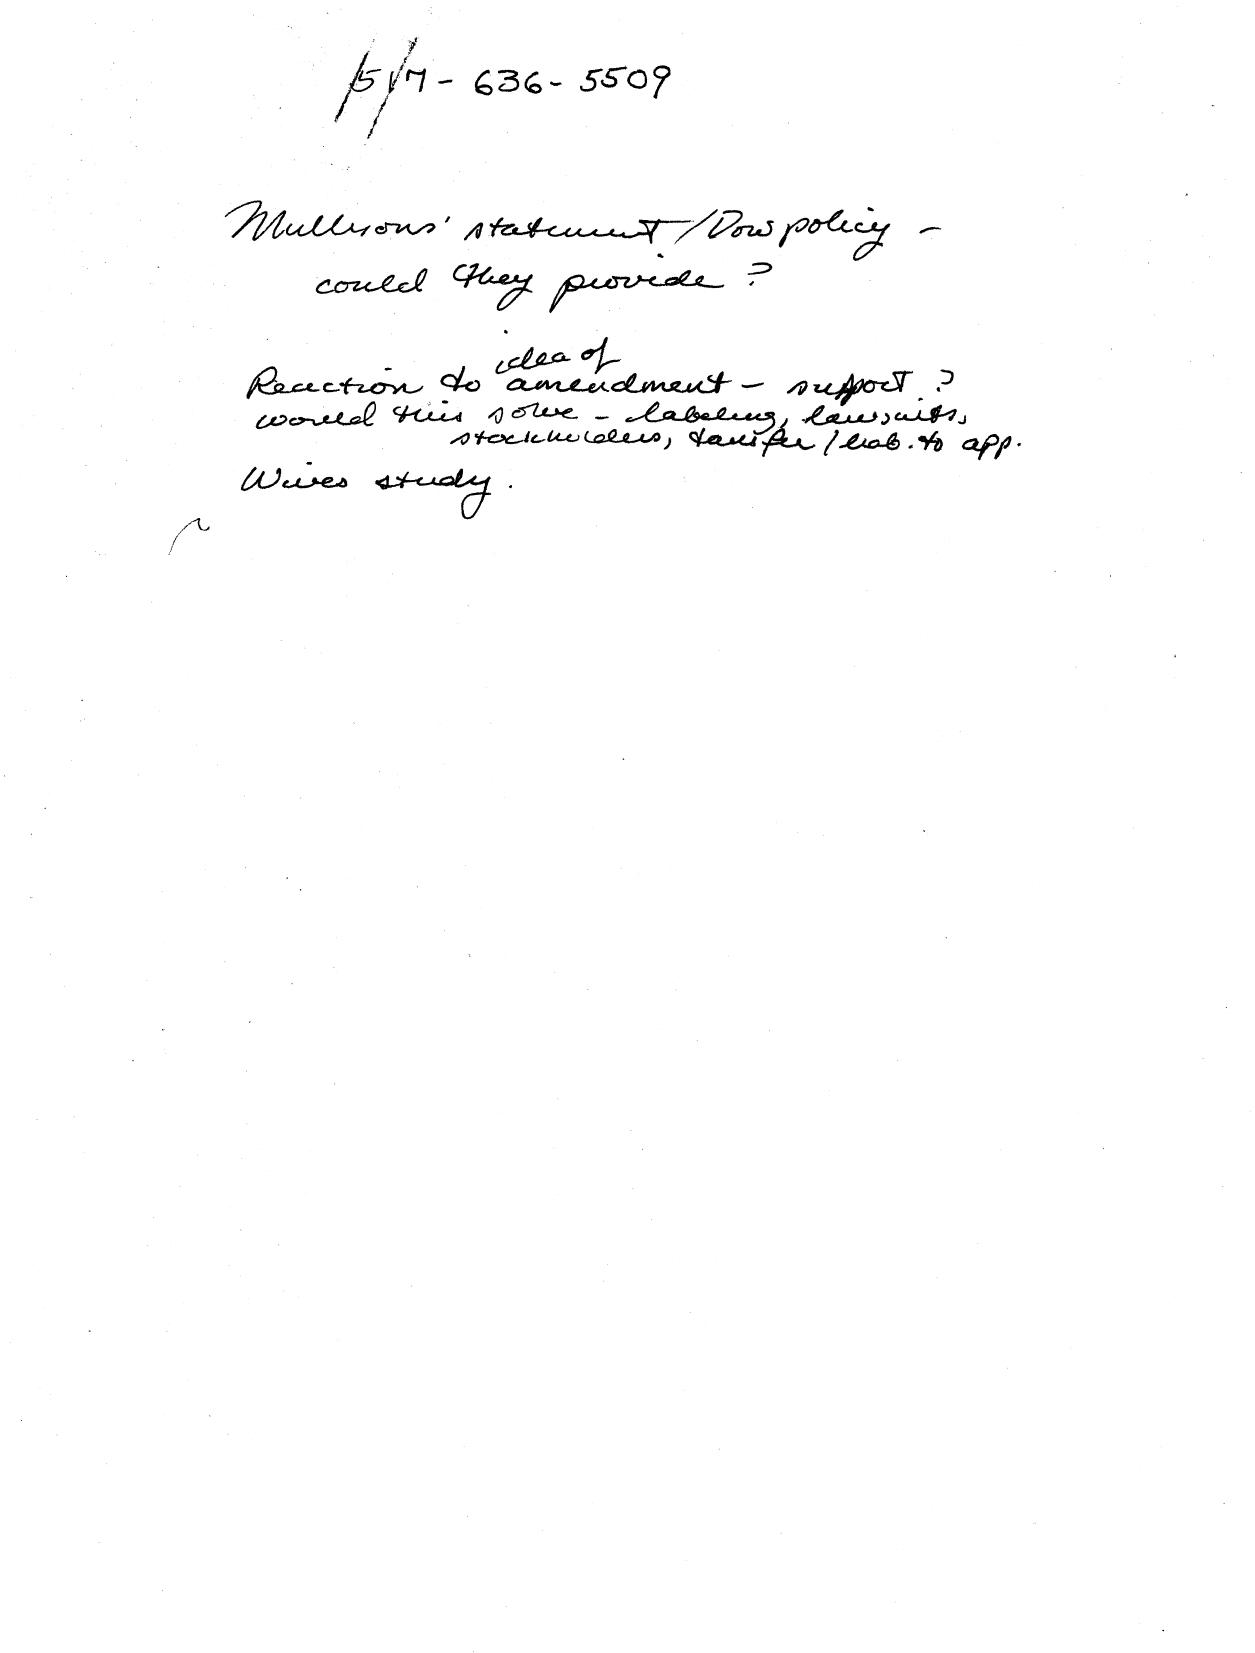 517-636-5509
Mullisons' statement/Dow policy -
could they provide?
idea of
Reaction to amendment - support?
would this solve - labeling, lawsuits,
stockholders, transfer/liab. to app.
Wives study.